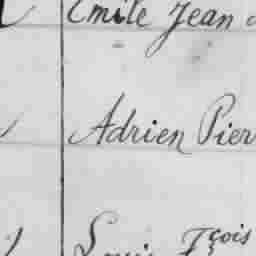 Emile Jean
Adrien Pier
Louis Fçois